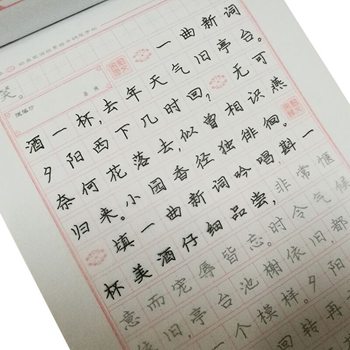 笑。
一曲新词
酒一杯,去年天气旧亭台。
夕阳西下几时回,无可
奈何花落去,似曾相识燕
归来。小园香径独徘徊。
填一曲新词吟唱斟一
杯美酒仔细品尝,非常惬
意而宠辱皆忘。时令气候
依旧,亭台池榭依旧,都
一个模样。夕阳
回转再